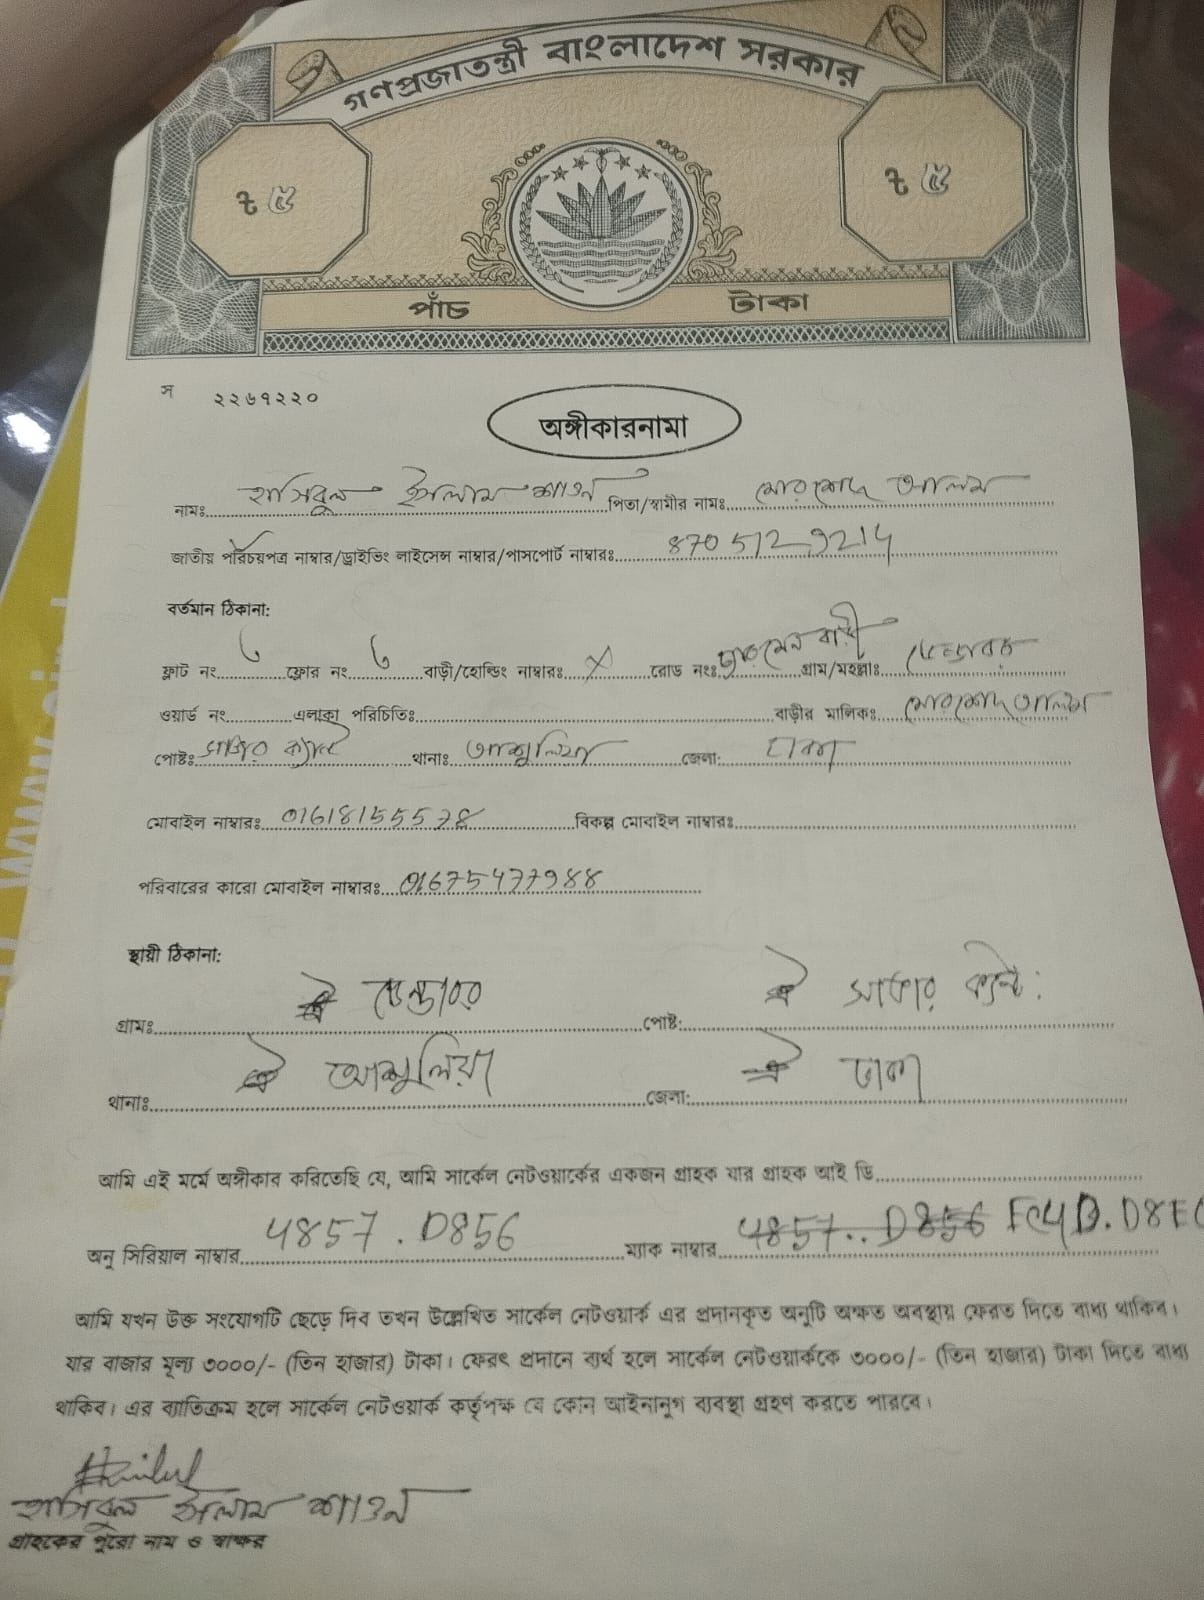 গণপ্রজাতন্ত্রী বাংলাদেশ সরকার
৳ ৫ ৳ ৫
পাঁচ টাকা
স ২২৬৭২২০
অঙ্গীকারনামা
নামঃ হাসিবুল ইসলাম শাওন পিতা/স্বামীর নামঃ মোরশেদ আলম
জাতীয় পরিচয়পত্র নাম্বার/ড্রাইভিং লাইসেন্স নাম্বার/পাসপোর্ট নাম্বারঃ 8705129214
বর্তমান ঠিকানা:
ফ্লাট নং ফ্লোর নং বাড়ী/হোল্ডিং নাম্বারঃ X রোড নংঃ গ্রাম/মহল্লাঃ
ওয়ার্ড নং এলাকা পরিচিতিঃ বাড়ীর মালিকঃ মোরশেদ আলম
পোষ্টঃ সাভার ক্যান্ট থানাঃ আশুলিয়া জেলা: ঢাকা
মোবাইল নাম্বারঃ 01618155578 বিকল্প মোবাইল নাম্বারঃ
পরিবারের কারো মোবাইল নাম্বারঃ 01675477988
স্থায়ী ঠিকানা:
গ্রামঃ পোষ্ট: সাভার ক্যান্ট:
থানাঃ আশুলিয়া জেলা: ঢাকা
আমি এই মর্মে অঙ্গীকার করিতেছি যে, আমি সার্কেল নেটওয়ার্কের একজন গ্রাহক যার গ্রাহক আই ডি
অনু সিরিয়াল নাম্বার 4857 . D856 ম্যাক নাম্বার 4857.. D856 FC4D.D8EC
আমি যখন উক্ত সংযোগটি ছেড়ে দিব তখন উল্লেখিত সার্কেল নেটওয়ার্ক এর প্রদানকৃত অনুটি অক্ষত অবস্থায় ফেরত দিতে বাধ্য থাকিব।
যার বাজার মূল্য ৩০০০/- (তিন হাজার) টাকা। ফেরৎ প্রদানে ব্যর্থ হলে সার্কেল নেটওয়ার্ককে ৩০০০/- (তিন হাজার) টাকা দিতে বাধ্য
থাকিব। এর ব্যাতিক্রম হলে সার্কেল নেটওয়ার্ক কর্তৃপক্ষ যে কোন আইনানুগ ব্যবস্থা গ্রহণ করতে পারবে।
হাসিবুল ইসলাম শাওন
গ্রাহকের পুরো নাম ও স্বাক্ষর